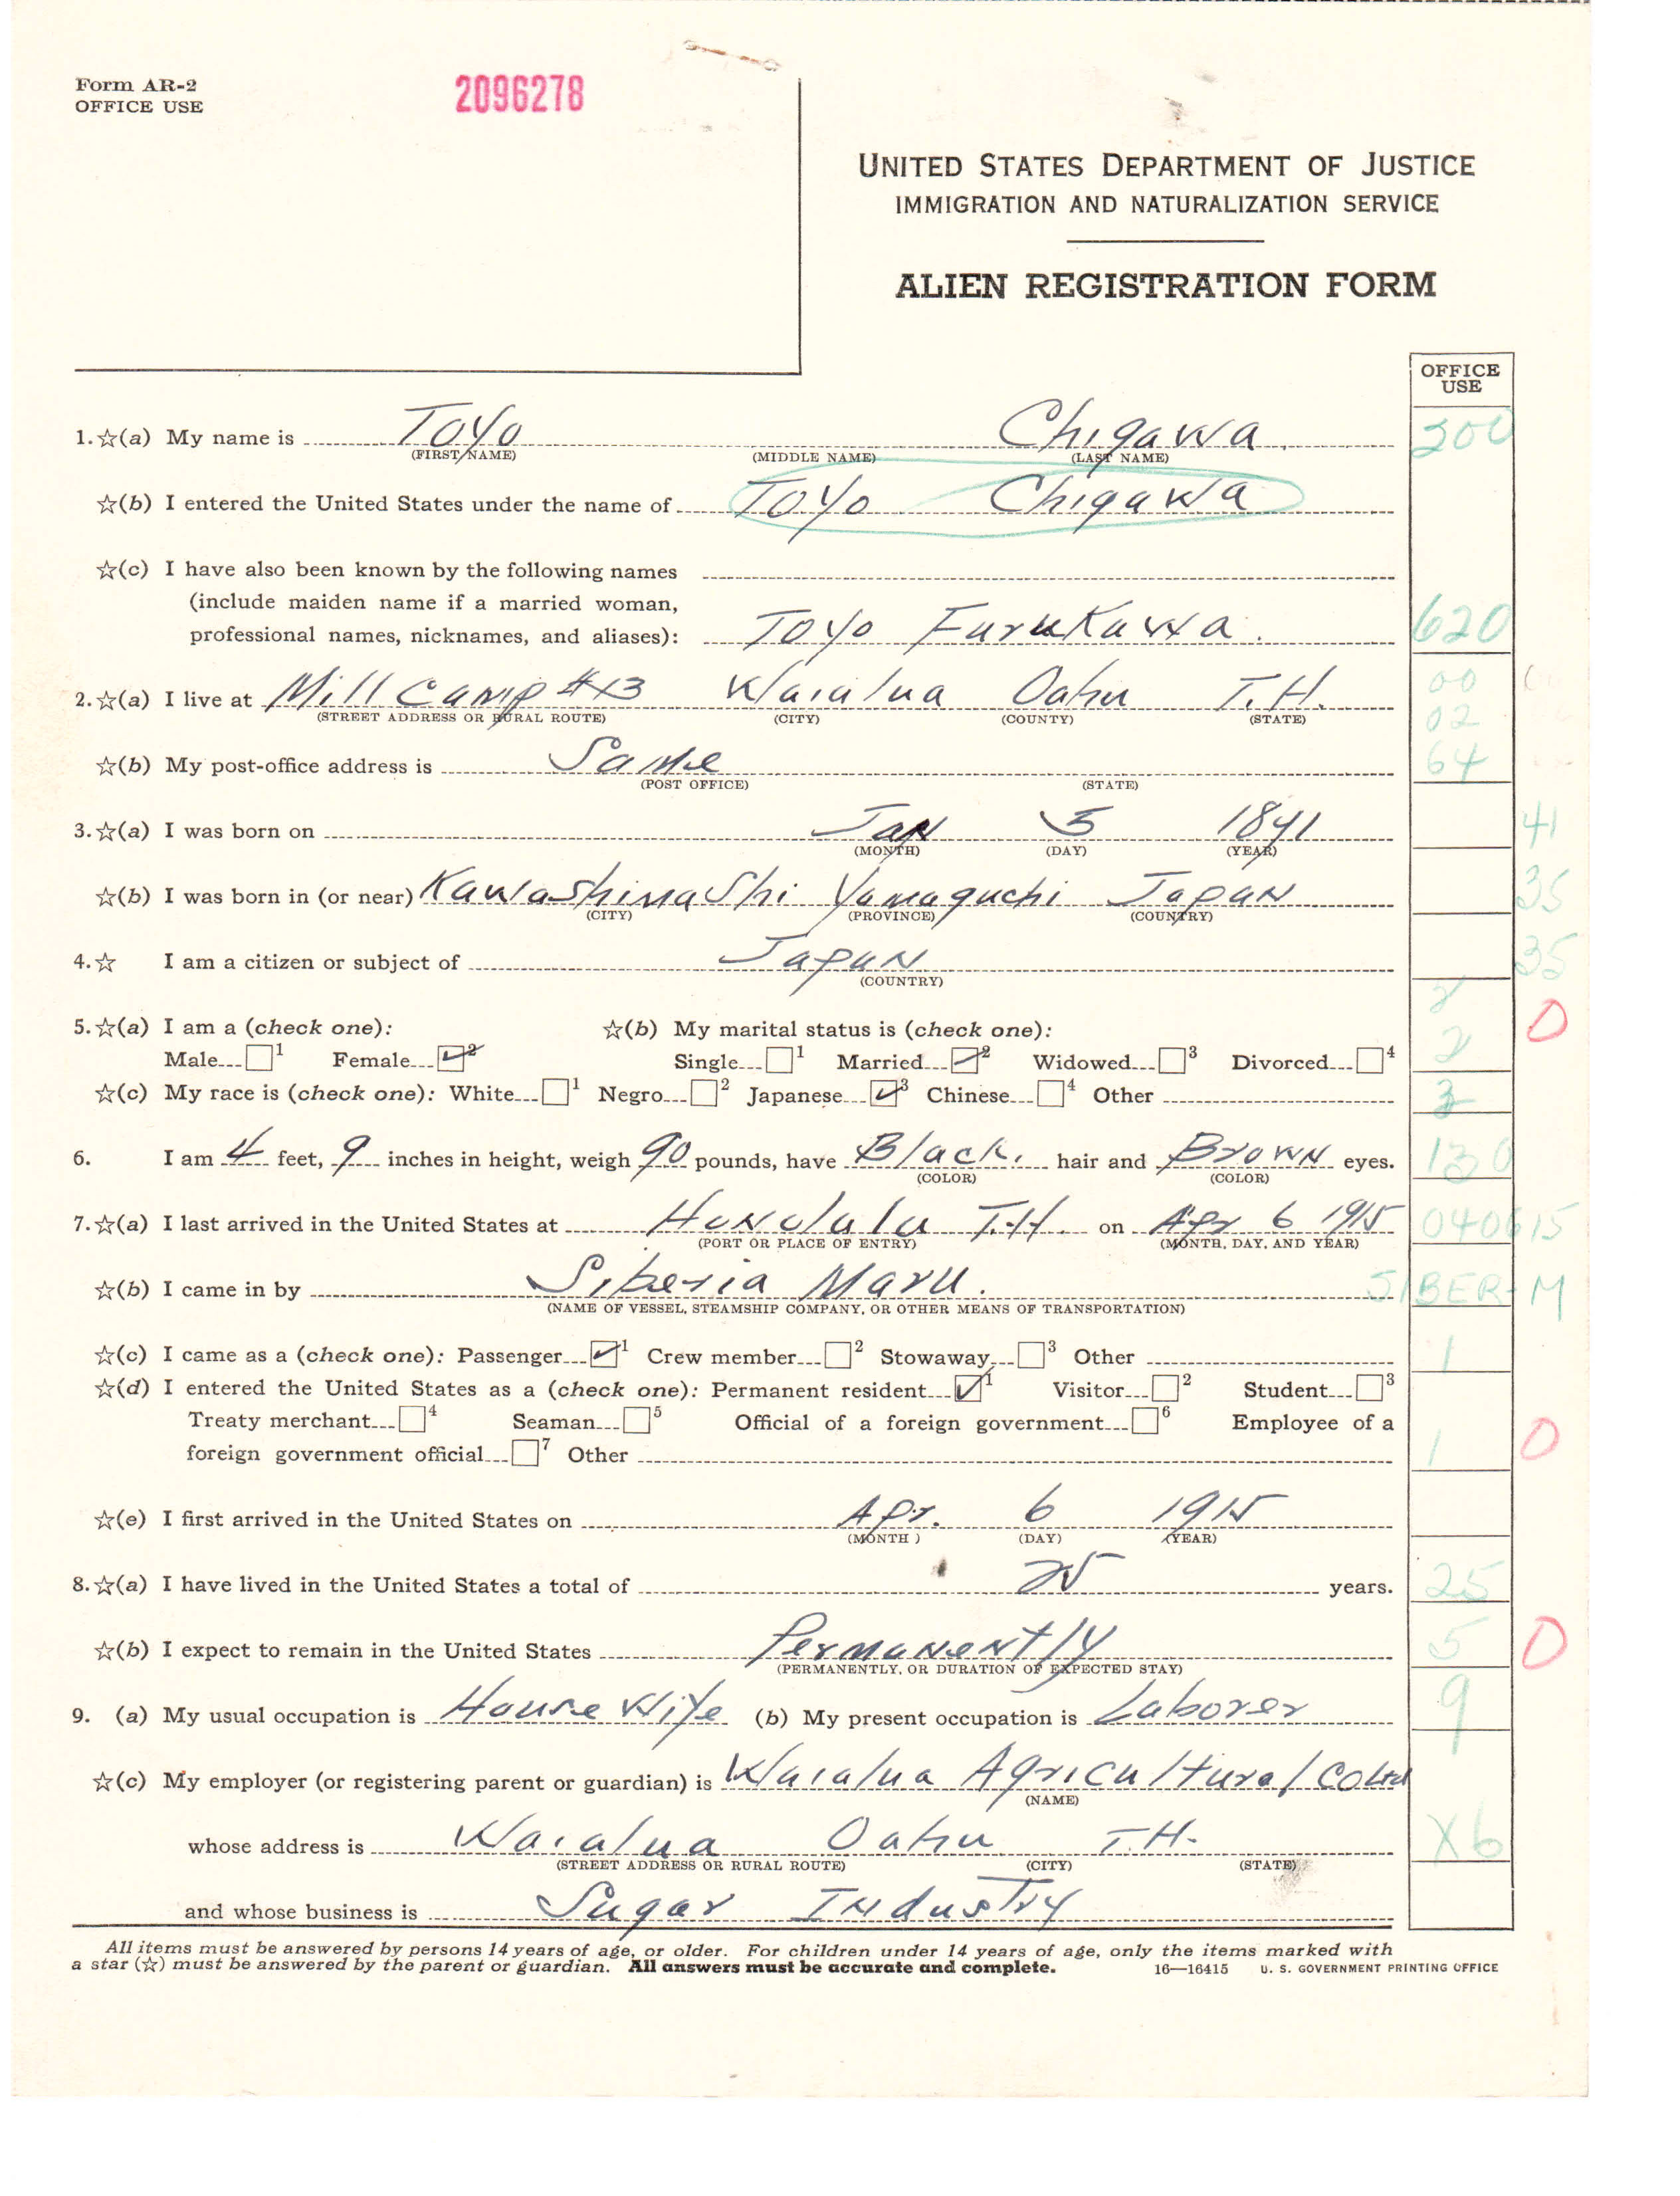 Form AR-2
OFFICE USE
2096278
UNITED STATES DEPARTMENT OF JUSTICE
IMMIGRATION AND NATURALIZATION SERVICE
ALIEN REGISTRATION FORM
OFFICE USE
1. ☆(a) My name is Toyo Chigawa 300
(FIRST NAME) (MIDDLE NAME) (LAST NAME)
☆(b) I entered the United States under the name of Toyo Chigawa
☆(c) I have also been known by the following names
(include maiden name if a married woman,
professional names, nicknames, and aliases): Toyo Furukawa. 620
2. ☆(a) I live at Mill Camp #13 Waialua Oahu T.H. 00
(STREET ADDRESS OR RURAL ROUTE) (CITY) (COUNTY) (STATE) 02
☆(b) My post-office address is Same 64
(POST OFFICE) (STATE)
3. ☆(a) I was born on Jan 5 1891 41
(MONTH) (DAY) (YEAR)
☆(b) I was born in (or near) Kawashima Shi Yamaguchi Japan 35
(CITY) (PROVINCE) (COUNTRY)
4. ☆ I am a citizen or subject of Japan 35
(COUNTRY)
5. ☆(a) I am a (check one): ☆(b) My marital status is (check one): 2 0
Male 1 Female ✓ 2 Single 1 Married ✓ 2 Widowed 3 Divorced 4 2
☆(c) My race is (check one): White 1 Negro 2 Japanese ✓ 3 Chinese 4 Other 3
6. I am 4 feet, 9 inches in height, weigh 90 pounds, have Black. hair and Brown eyes. 130
(COLOR) (COLOR)
7. ☆(a) I last arrived in the United States at Honolulu T.H. on Apr 6 1915 040615
(PORT OR PLACE OF ENTRY) (MONTH, DAY, AND YEAR)
☆(b) I came in by Siberia Maru. SIBER-M
(NAME OF VESSEL, STEAMSHIP COMPANY, OR OTHER MEANS OF TRANSPORTATION)
☆(c) I came as a (check one): Passenger ✓ 1 Crew member 2 Stowaway 3 Other 1
☆(d) I entered the United States as a (check one): Permanent resident ✓ 1 Visitor 2 Student 3
Treaty merchant 4 Seaman 5 Official of a foreign government 6 Employee of a
foreign government official 7 Other 1 0
☆(e) I first arrived in the United States on Apr. 6 1915
(MONTH) (DAY) (YEAR)
8. ☆(a) I have lived in the United States a total of 25 years. 25
☆(b) I expect to remain in the United States Permanently 5 0
(PERMANENTLY, OR DURATION OF EXPECTED STAY)
9. (a) My usual occupation is House Wife (b) My present occupation is Laborer 9
☆(c) My employer (or registering parent or guardian) is Waialua Agricultural Co Ltd
(NAME)
whose address is Waialua Oahu T.H. X6
(STREET ADDRESS OR RURAL ROUTE) (CITY) (STATE)
and whose business is Sugar Industry
All items must be answered by persons 14 years of age, or older. For children under 14 years of age, only the items marked with
a star (☆) must be answered by the parent or guardian. All answers must be accurate and complete. 16—16415 U. S. GOVERNMENT PRINTING OFFICE